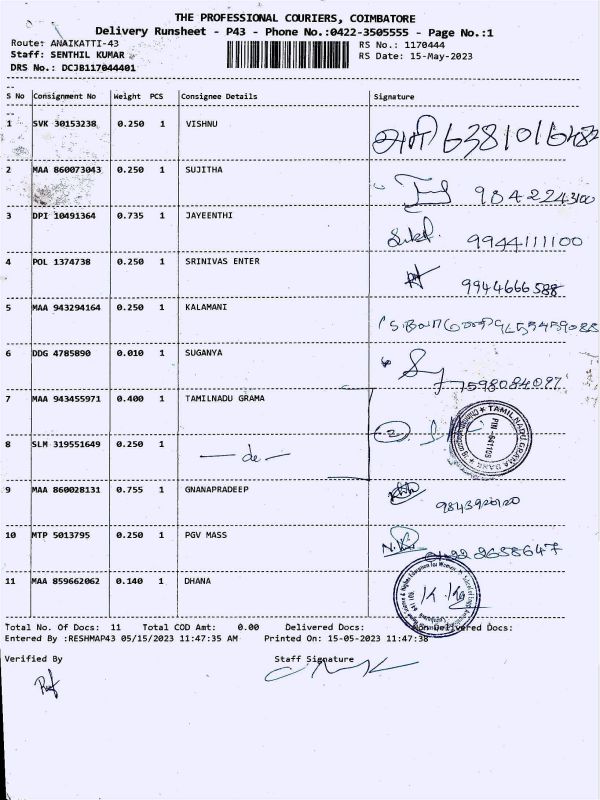 THE PROFESSIONAL COURIERS, COIMBATORE
Delivery Runsheet - P43 - Phone No.:0422-3505555 - Page No.:1
Route: ANAIKATTI-43 RS No.: 1170444
Staff: SENTHIL KUMAR RS Date: 15-May-2023
DRS No.: DCJB117044401
S No Consignment No Weight PCS Consignee Details Signature
1 SVK 30153238 0.250 1 VISHNU 6381016482
2 MAA 860073043 0.250 1 SUJITHA 9842243100
3 DPI 10491364 0.735 1 JAYEENTHI 9944111100
4 POL 1374738 0.250 1 SRINIVAS ENTER 9944666588
5 MAA 943294164 0.250 1 KALAMANI
6 DDG 4785890 0.010 1 SUGANYA 7598084097
7 MAA 943455971 0.400 1 TAMILNADU GRAMA 2 TAMILNADU GRAMA BANK PIN-641108
8 SLM 319551649 0.250 1 — do —
9 MAA 860028131 0.755 1 GNANAPRADEEP 9843920120
10 MTP 5013795 0.250 1 PGV MASS
11 MAA 859662062 0.140 1 DHANA
Total No. Of Docs: 11 Total COD Amt: 0.00 Delivered Docs: Non Delivered Docs:
Entered By :RESHMAP43 05/15/2023 11:47:35 AM Printed On: 15-05-2023 11:47:38
Verified By Staff Signature